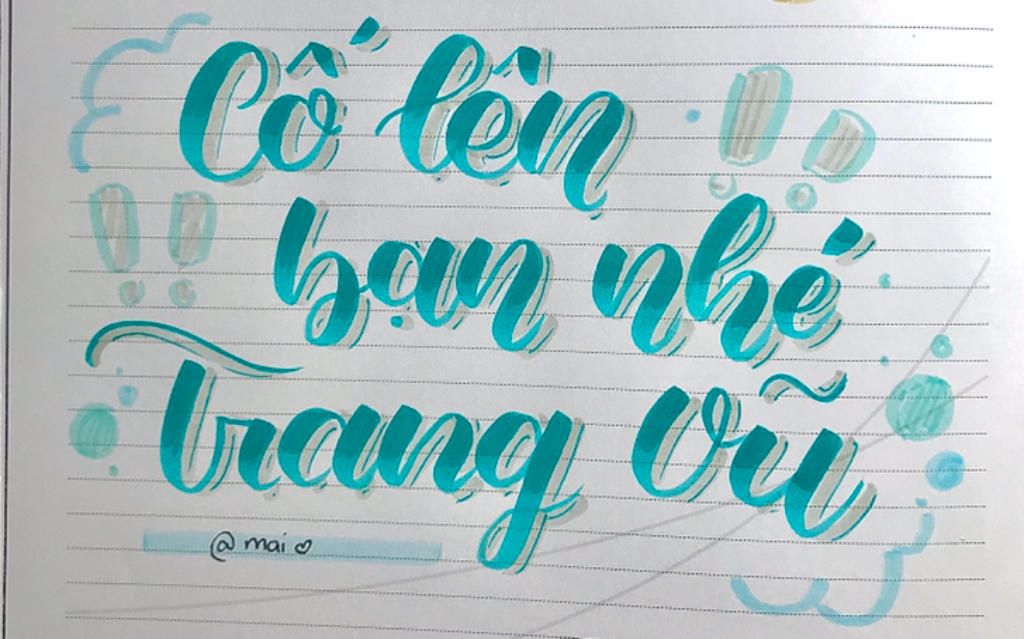 Cố lên
bạn nhé
Trang Vũ
@mai